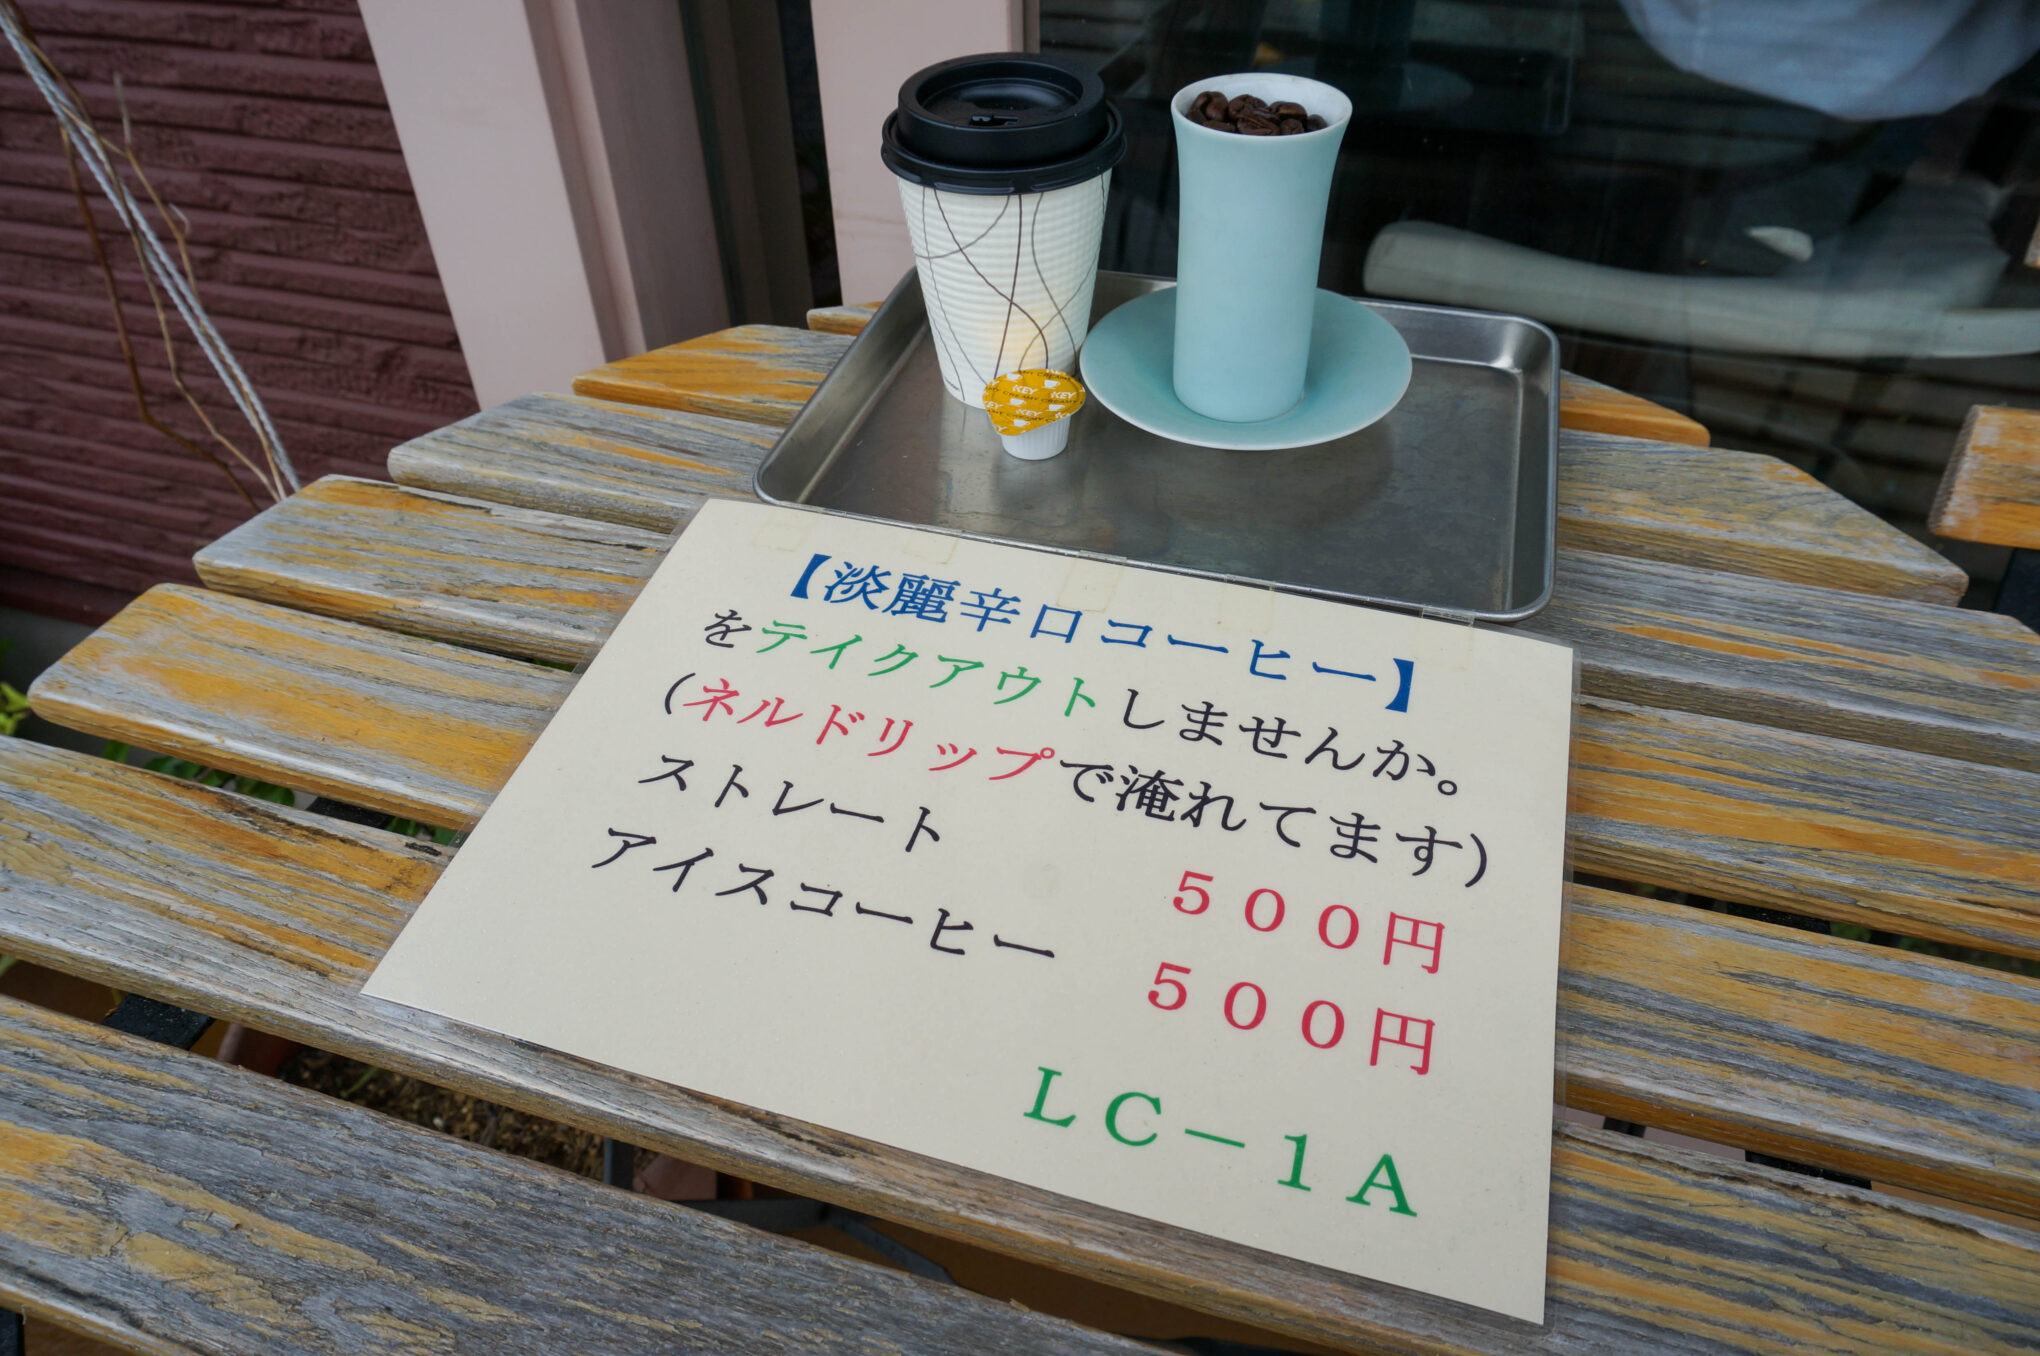 KEY KEY
MY CREAMY CREAMY
KEY KEY
【淡麗辛口コーヒー】
をテイクアウトしませんか。
(ネルドリップで淹れてます)
ストレート ５００円
アイスコーヒー ５００円
ＬＣ－１Ａ